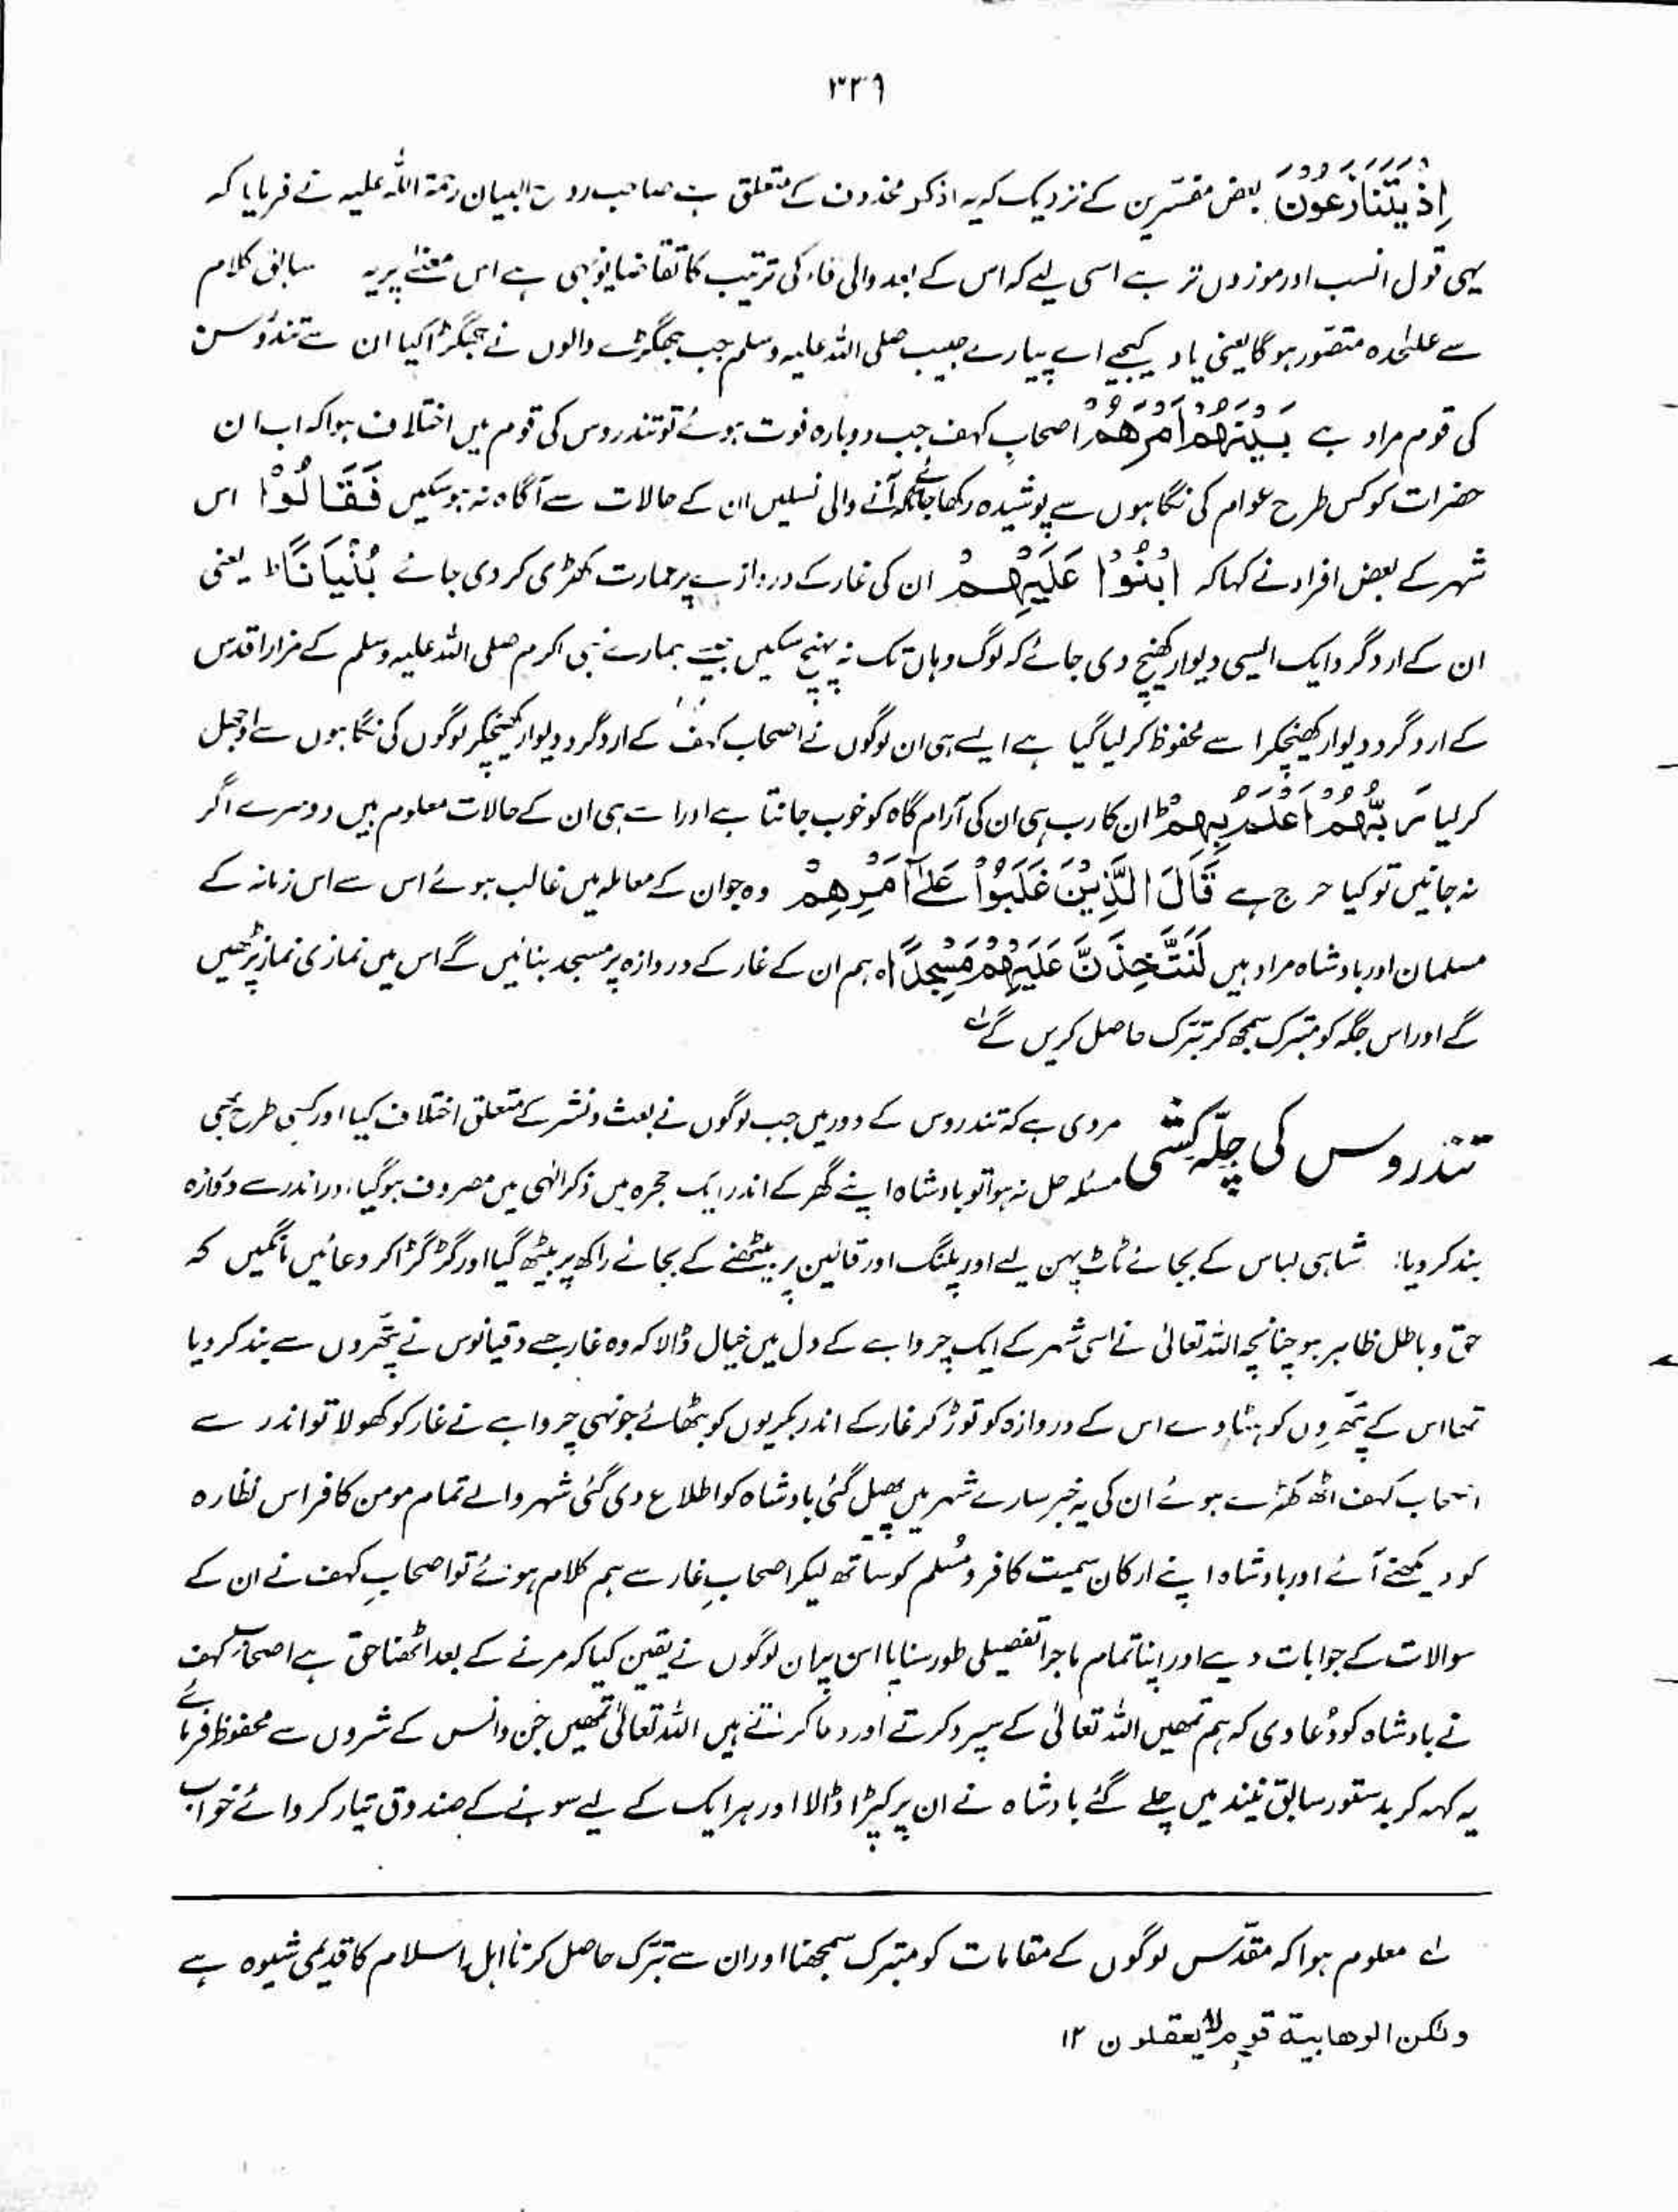 ۳۳۹
اِذْ يَتَنَازَعُوْنَ بعض مفسّرین کے نزدیک کہ یہ اذکر محذوف کے متعلق ہے صاحب روح البیان رحمۃ اللہ علیہ نے فرمایا کہ
یہی قول انسب اور موزوں تر ہے اسی لیے کہ اس کے بعد والی فاء کی ترتیب کا تقاضا یونہی ہے اس معنےٰ پر یہ سابق کلام
سے علیٰحدہ متصّور ہو گا یعنی یاد کیجیے اے پیارے حبیب صلی اللہ علیہ وسلم جب جھگڑے والوں نے جھگڑا کیا ان سے تندروس
کی قوم مراد ہے بَيْنَهُمْ اَمْرَهُمْ اصحابِ کہف جب دوبارہ فوت ہوئے تو تندروس کی قوم میں اختلاف ہوا کہ اب ان
حضرات کو کس طرح عوام کی نگاہوں سے پوشیدہ رکھا جائے تاکہ آنے والی نسلیں ان کے حالات سے آگاہ نہ ہو سکیں فَقَالُوْا اس
شہر کے بعض افراد نے کہا کہ ابْنُوْا عَلَيْهِمْ ان کی غار کے دروازے پر عمارت کھڑی کر دی جائے بُنْيَانًا ط یعنی
ان کے ارد گرد ایک ایسی دیوار کھینچ دی جائے کہ لوگ وہاں تک نہ پہنچ سکیں جیسے ہمارے نبی اکرم صلی اللہ علیہ وسلم کے مزار اقدس
کے ارد گرد دیوار کھینچکر اسے محفوظ کر لیا گیا ہے ایسے ہی ان لوگوں نے اصحاب کہف کے ارد گرد دیوار کھینچکر لوگوں کی نگاہوں سے اوجھل
کر لیا رَبُّهُمْ اَعْلَمُ بِهِمْ ط ان کا رب ہی ان کی آرام گاہ کو خوب جانتا ہے اور اسے ہی ان کے حالات معلوم ہیں دوسرے اگر
نہ جانیں تو کیا حرج ہے قَالَ الَّذِيْنَ غَلَبُوْا عَلٰٓى اَمْرِهِمْ وہ جو ان کے معاملہ میں غالب ہوئے اس سے اس زمانہ کے
مسلمان اور بادشاہ مراد ہیں لَنَتَّخِذَنَّ عَلَيْهِمْ مَسْجِدًا ہ ہم ان کے غار کے دروازہ پر مسجد بنائیں گے اس میں نمازی نماز پڑھیں
گے اور اس جگہ کو متبرک سمجھ کر تبرّک حاصل کریں گے ؎
تندروس کی چلّہ کشی مروی ہے کہ تندروس کے دور میں جب لوگوں نے بعث و نشر کے متعلق اختلاف کیا اور کسی طرح بھی
مسئلہ حل نہ ہوا تو بادشاہ اپنے گھر کے اندر ایک حجرہ میں ذکر الٰہی میں مصروف ہو گیا، اور اندر سے دروازہ
بند کر دیا، شاہی لباس کے بجائے ٹاٹ پہن لیے اور پلنگ اور قالین پر بیٹھنے کے بجائے راکھ پر بیٹھ گیا اور گڑگڑا کر دعائیں مانگیں کہ
حق و باطل ظاہر ہو چنانچہ اللہ تعالیٰ نے اسی شہر کے ایک چرواہے کے دل میں خیال ڈالا کہ وہ غار جسے دقیانوس نے پتھّروں سے بند کر دیا
تھا اس کے پتھّروں کو ہٹا دے اس کے دروازہ کو توڑ کر غار کے اندر بکریوں کو بٹھائے جونہی چرواہے نے غار کو کھولا تو اندر سے
اصحاب کہف اٹھ کھڑے ہوئے ان کی یہ خبر سارے شہر میں پھیل گئی بادشاہ کو اطلاع دی گئی شہر والے تمام مومن کافر اس نظارہ
کو دیکھنے آئے اور بادشاہ اپنے ارکان سمیت کافر و مُسلم کو ساتھ لیکر اصحابِ غار سے ہم کلام ہوئے تو اصحابِ کہف نے ان کے
سوالات کے جوابات دیے اور اپنا تمام ماجرا تفصیلی طور سنایا اس پر ان لوگوں نے یقین کیا کہ مرنے کے بعد اٹھنا حق ہے اصحاب کہف
نے بادشاہ کو دُعا دی کہ ہم تمھیں اللہ تعالیٰ کے سپرد کرتے اور دعا کرتے ہیں اللہ تعالیٰ تمھیں جن و انس کے شروں سے محفوظ فرمائے
یہ کہہ کر بدستور سابق نیند میں چلے گئے بادشاہ نے ان پر کپڑا ڈالا اور ہر ایک کے لیے سونے کے صندوق تیار کروائے خواب
؎ معلوم ہوا کہ مقدّس لوگوں کے مقامات کو متبرک سمجھنا اور ان سے تبرّک حاصل کرنا اہل اسلام کا قدیمی شیوہ ہے
ولٰکن الوهابية قوم لا يعقلون ۱۲